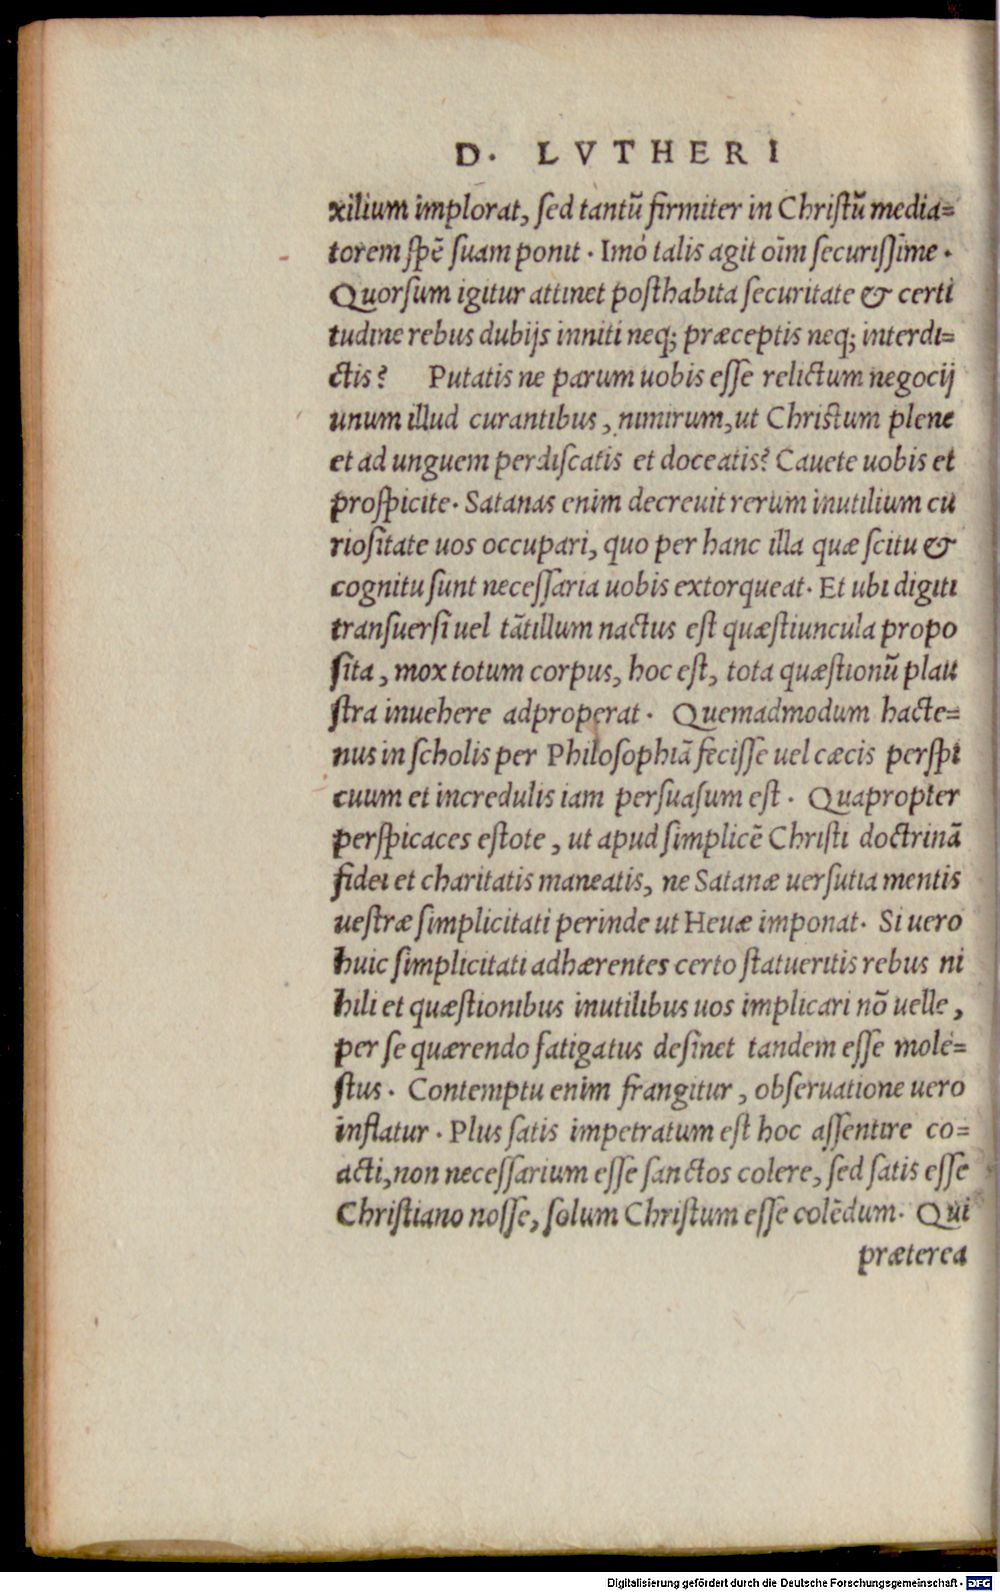 D. LVTHERI
xilium implorat, ſed tantũ firmiter in Chriſtũ media=
torem ſpẽ ſuam ponit. Imó talis agit oĩm ſecuriſſime.
Quorſum igitur attinet poſthabita ſecuritate & certi
tudine rebus dubijs inniti neq; præceptis neq; interdi=
ctis? Putatis ne parum uobis eſſe relictum negocij
unum illud curantibus, nimirum, ut Chriſtum plene
et ad unguem perdiſcatis et doceatis? Cauete uobis et
proſpicite. Satanas enim decreuit rerum inutilium cu
rioſitate uos occupari, quo per hanc illa quæ ſcitu &
cognitu ſunt neceſſaria uobis extorqueat. Et ubi digiti
tranſuerſi uel tãtillum nactus eſt quæſtiuncula propo
ſita, mox totum corpus, hoc eſt, tota quæſtionũ plau
ſtra inuehere adproperat. Quemadmodum hacte=
nus in ſcholis per Philoſophiã feciſſe uel cæcis perſpi
cuum et incredulis iam perſuaſum eſt. Quapropter
perſpicaces eſtote, ut apud ſimplicẽ Chriſti doctrinã
fidei et charitatis maneatis, ne Satanæ uerſutia mentis
ueſtræ ſimplicitati perinde ut Heuæ imponat. Si uero
huic ſimplicitati adhærentes certo ſtatueritis rebus ni
hili et quæſtionibus inutilibus uos implicari nõ uelle,
per ſe quærendo fatigatus deſinet tandem eſſe mole=
ſtus. Contemptu enim frangitur, obſeruatione uero
inflatur. Plus ſatis impetratum eſt hoc aſſentire co=
acti, non neceſſarium eſſe ſanctos colere, ſed ſatis eſſe
Chriſtiano noſſe, ſolum Chriſtum eſſe colẽdum. Qui
præterea
Digitalisierung gefördert durch die Deutsche Forschungsgemeinschaft - DFG